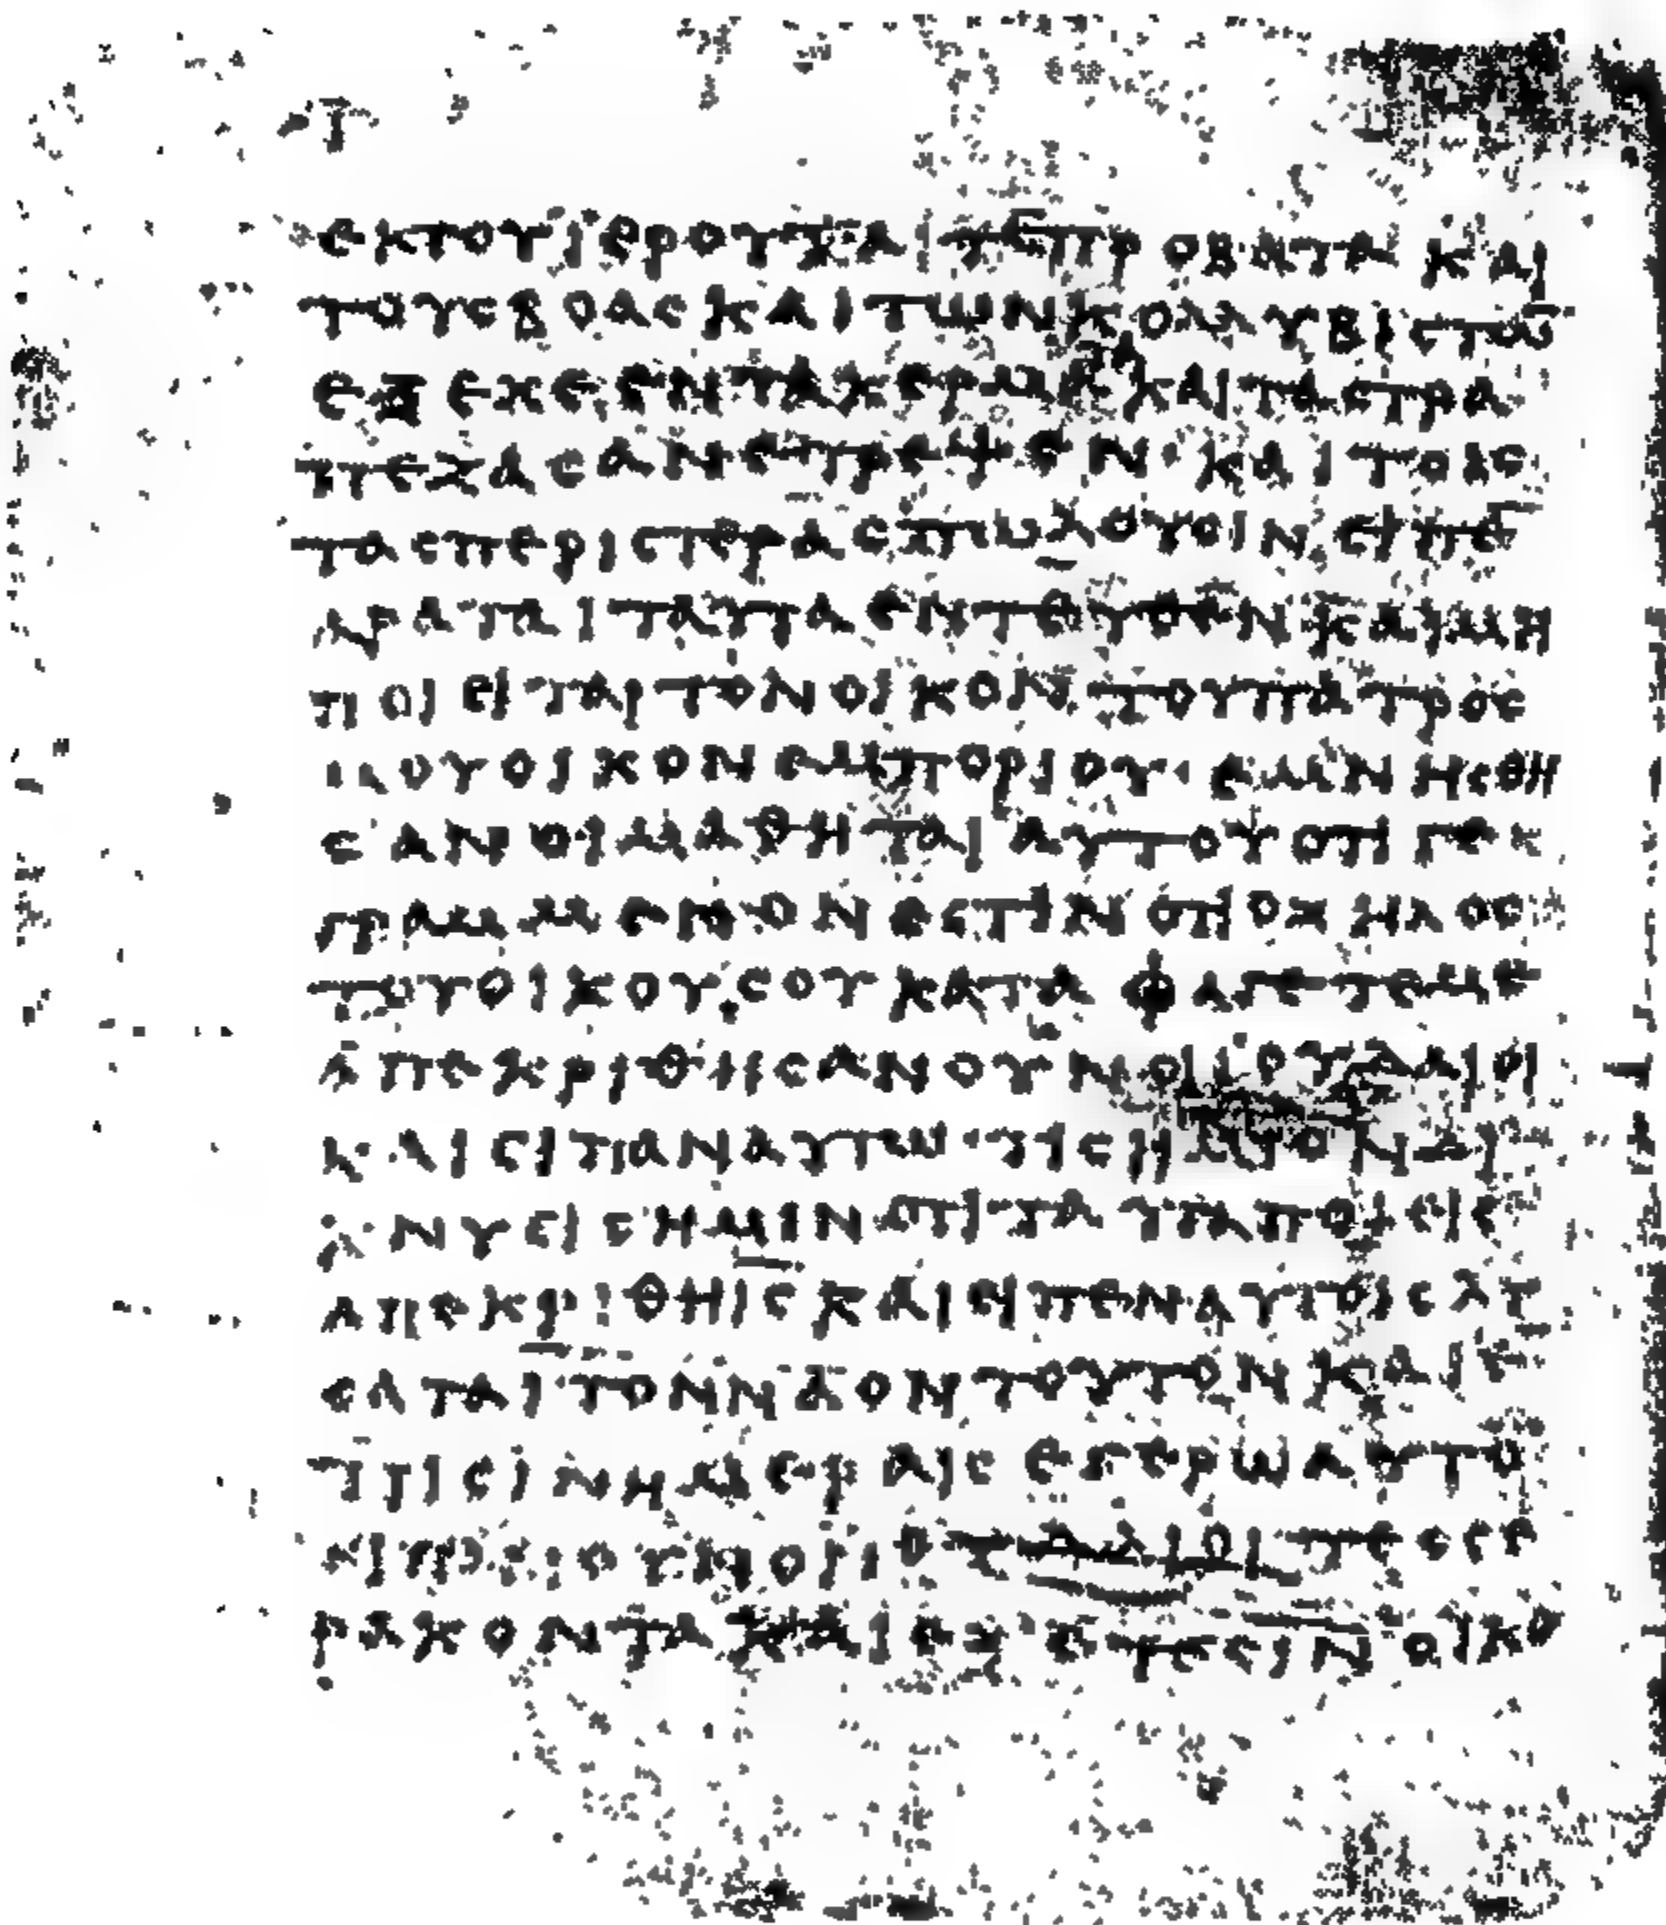 εκτουϊερουτατεπροβατα και
τουςβοαςκαιτωνκολλυβιστω̅
εξεχεεντακερματακαιταςτρα
πεζαςανετρεψεν·καιτοις
ταςπεριστεραςπωλουσινειπε̅
αραταιταυταεντευθενκαιμη
ποιειταιτονοικοντουπατρος
μουοικονεμποριου·εμνησθη
σανοιμαθηταιαυτουοτιγε
γραμμενονεστινοτιοζηλος
τουοικουσουκαταφαγετεμε
απεκριθησανουνοιϊουδαιοι
καιειπαναυτωτισημιονδι
κνυεισημινοτιταυταποιεις
απεκριθηι̅ς̅καιειπεναυτοισλυ
σαταιτονναοντουτονκαιε̅
τρισινημεραισεγερωαυτο̅
ειπονουνοιιουδαιοιτεσσε
ρακοντακαιεξετεσινοικο